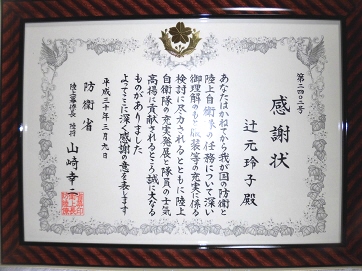 第二四〇二号
感謝状
辻元玲子殿
あなたはかねてから我が国の防衛と
陸上自衛隊の任務について深い
御理解のもと服装等の充実に係る
検討に尽力されるとともに陸上
自衛隊の充実発展と隊員の士気
高揚に貢献されるところ誠に大なる
ものがありました
よってここに深く感謝の意を表します
平成三十年三月九日
防衛省
陸上幕僚長 陸将 山崎幸二